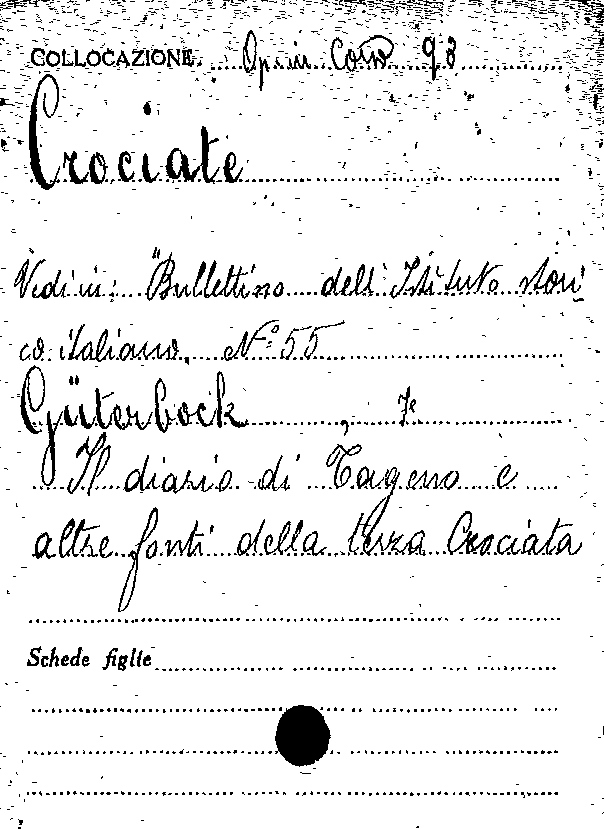 COLLOCAZIONE. 93
Crociate
Vedi in: Bullettino dell'Istituto stori
co italiano. N.° 55
Güterbock ,
Il diario di Tageno e
altre fonti della terza Crociata
Schede figlie